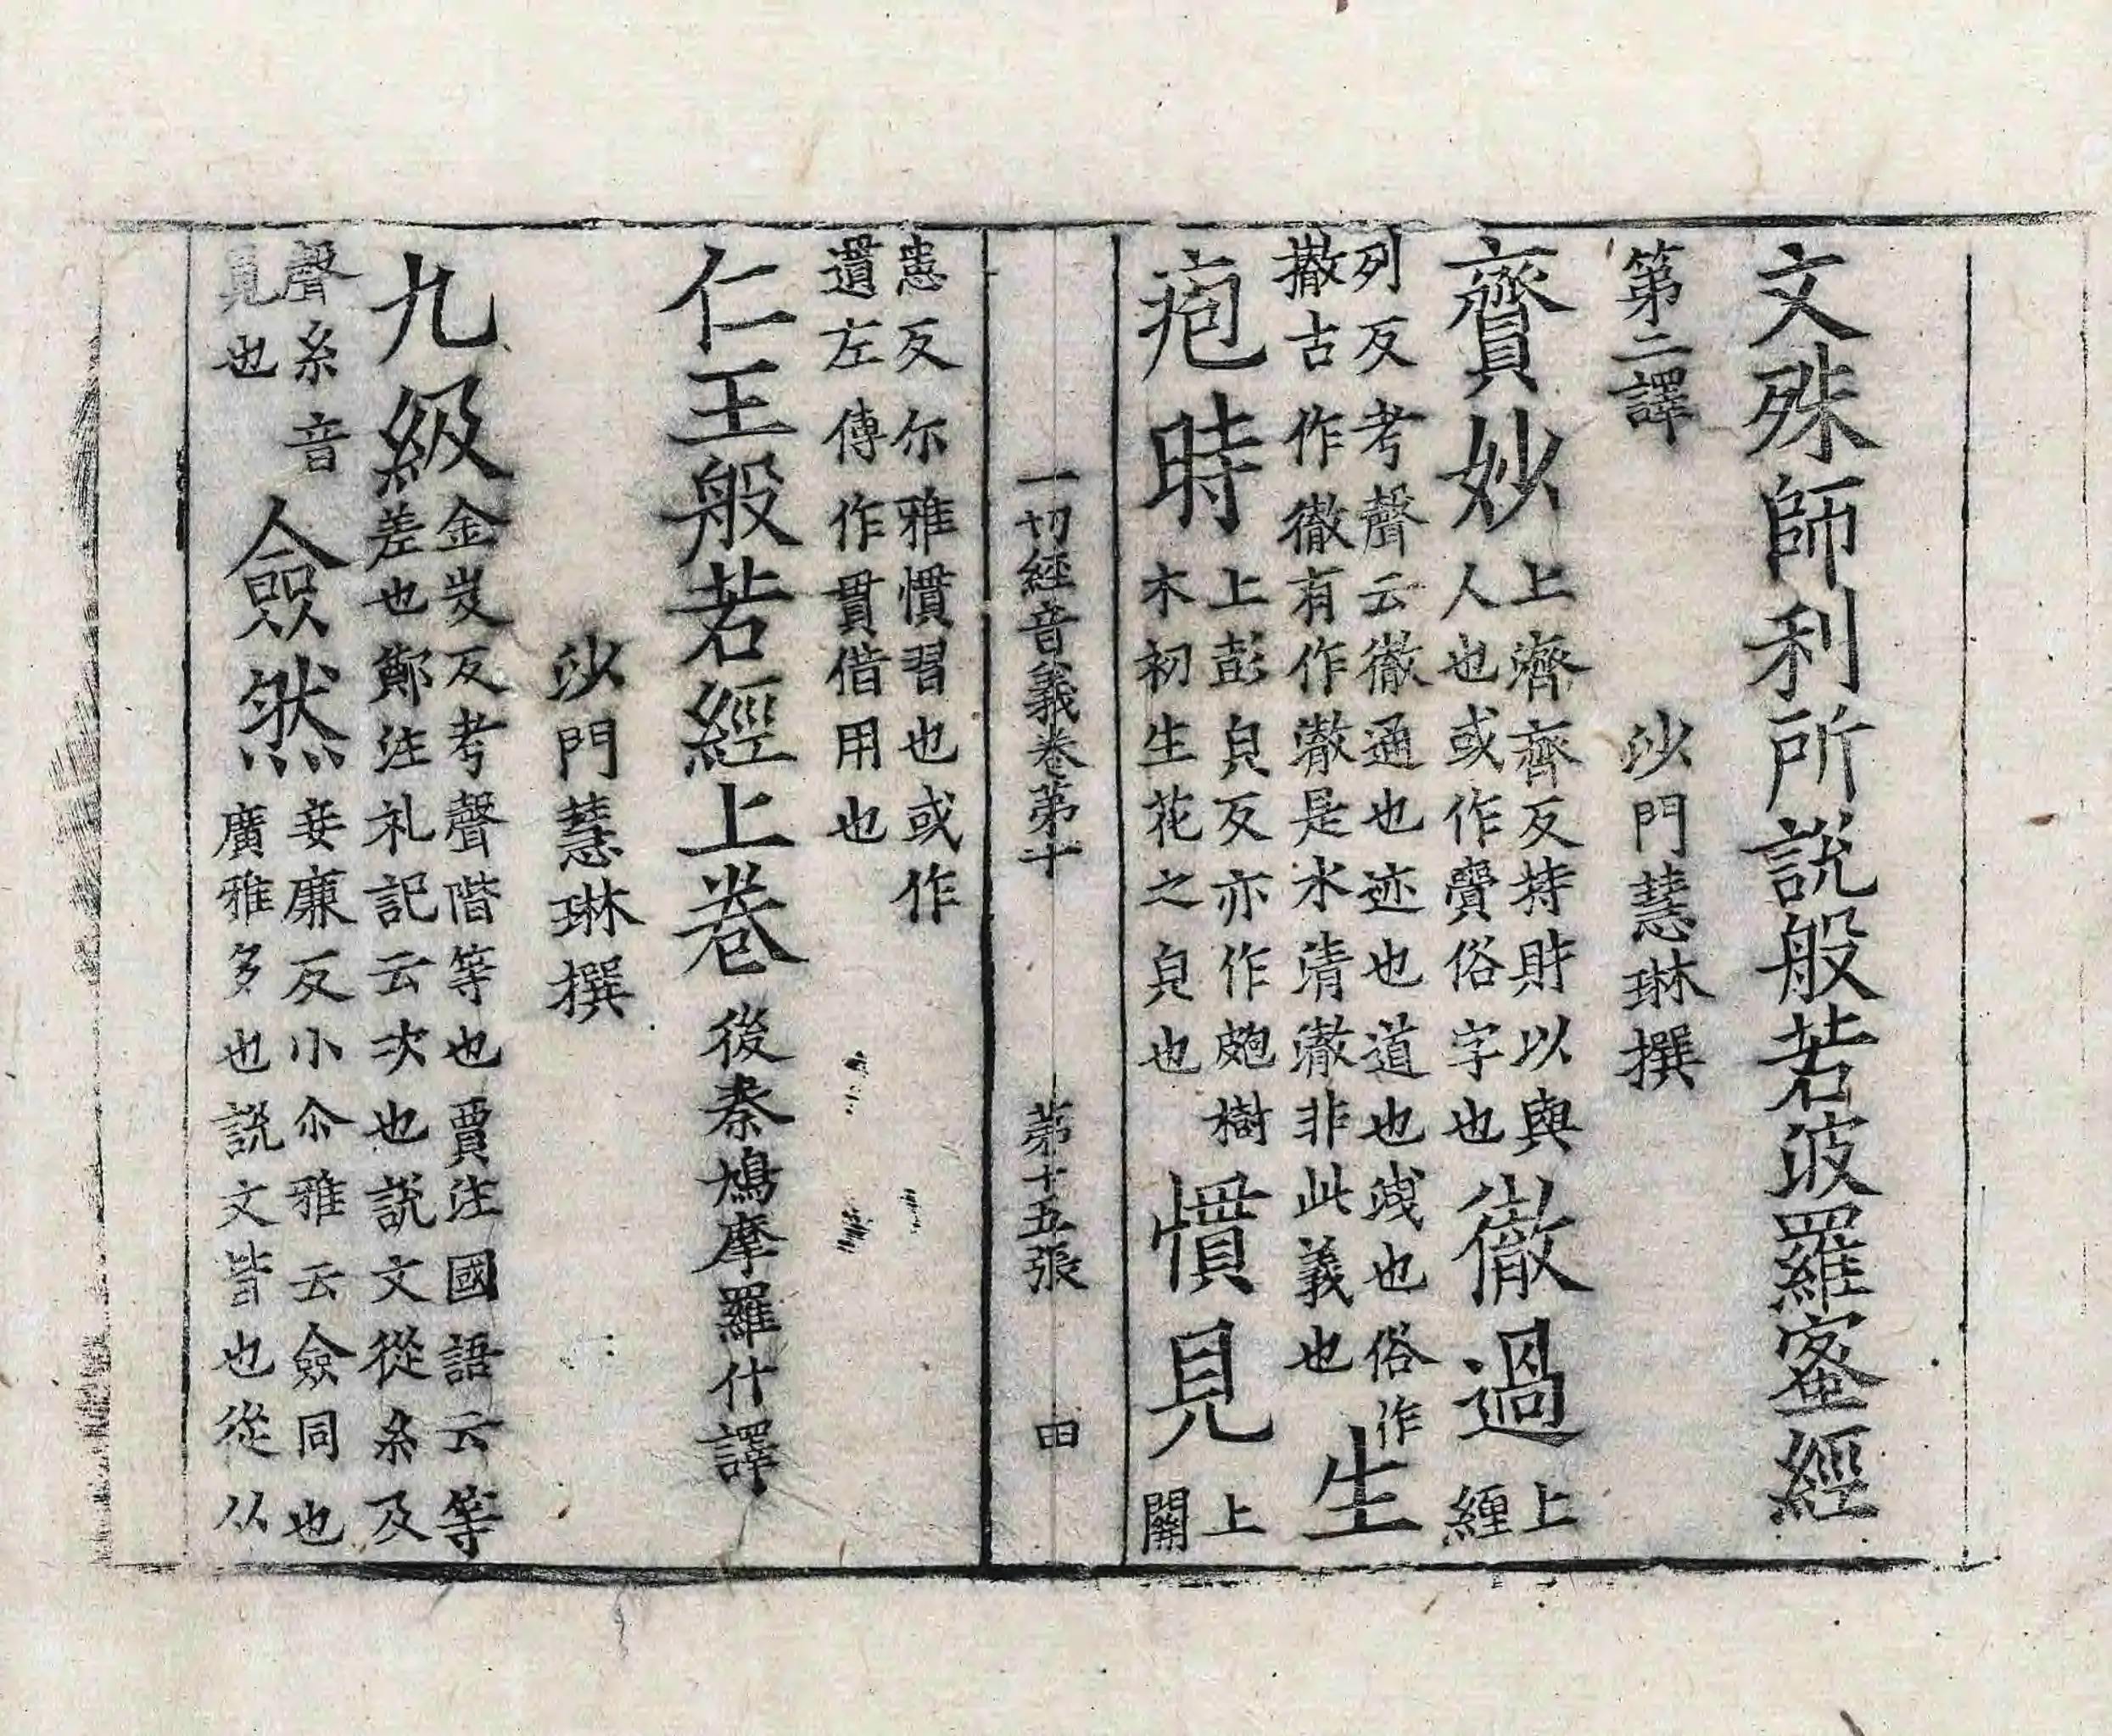 文殊師利所說般若波羅蜜經
第二譯　沙門慧琳撰
齎妙上濟齊反持財以與人也或作賷俗字也徹過上纏
列反考聲云徹通也迹也道也洩也俗作撤古作徹有作澈是水清澈非此義也生
疱時上彭皃反亦作皰樹木初生花之皃也慣見上關
一切經音義卷第十　第十五張　田
患反尒雅慣習也或作遺左傳作貫借用也
仁王般若經上卷後秦鳩摩羅什譯
沙門慧琳撰
九級金岌反考聲階等也賈注國語云等差也鄭注礼記云次也說文從糸及
聲糸音覓也僉然妾廉反小尒雅云僉同也廣雅多也說文皆也從从